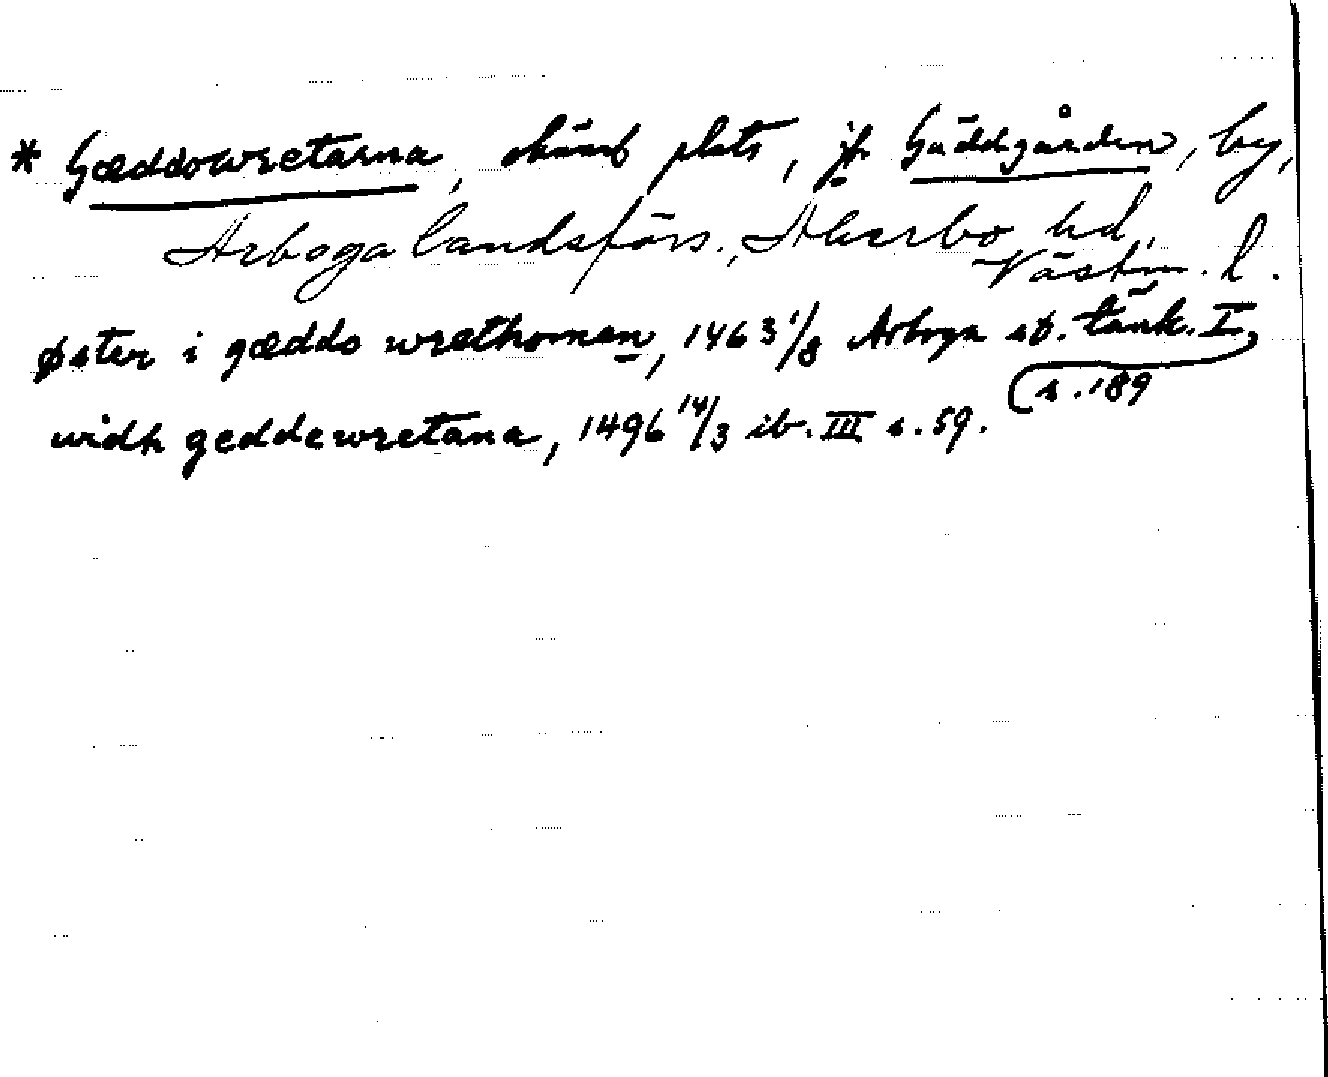 * Gæddowretarna, okänd plats, jfr Gäddgården, by,
Arboga landsförs., Åkerbo hd,
Västm. l.
øster i gæddo wrethomen, 1463 1/8 Arboga sb. tänk. I,
s. 189
widh geddewretana, 1496 14/3 ib. III s. 59.